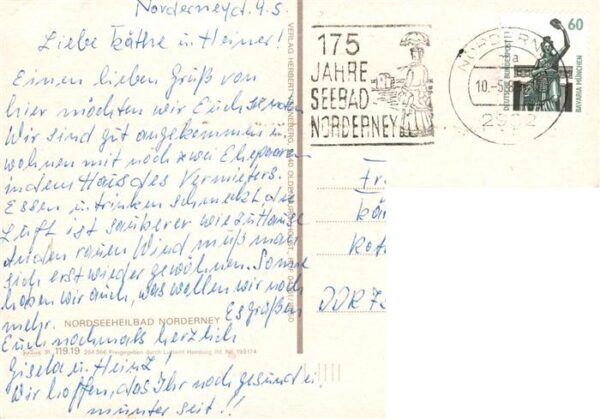 Norderney d. 9.5.
Liebe Käthe u. Heiner!
Einen lieben Gruß von
hier möchten wir Euch senden
Wir sind gut angekommen u.
wohnen mit noch zwei Ehepaaren
in dem Haus des Vermieters.
Essen u. trinken schmeckt die
Luft ist sauberer wie zu Hause
An den rauen Wind muß man
sich erst wieder gewöhnen. Sonne
haben wir auch, was wollen wir noch
mehr. Es grüßen
Euch nochmals herzlich
Gisela u. Heinz!
Wir hoffen, das Ihr noch gesund u.
munter seit!!
NORDSEEHEILBAD NORDERNEY
119.19 Freigegeben durch Luftamt Hamburg
VERLAG HERBERT
175
JAHRE
SEEBAD
NORDERNEY
NORDERN
a
10.-5.8
2982
60
DEUTSCHE BUNDESPOST
BAVARIA MÜNCHEN
Fr
Kä
DDR 7